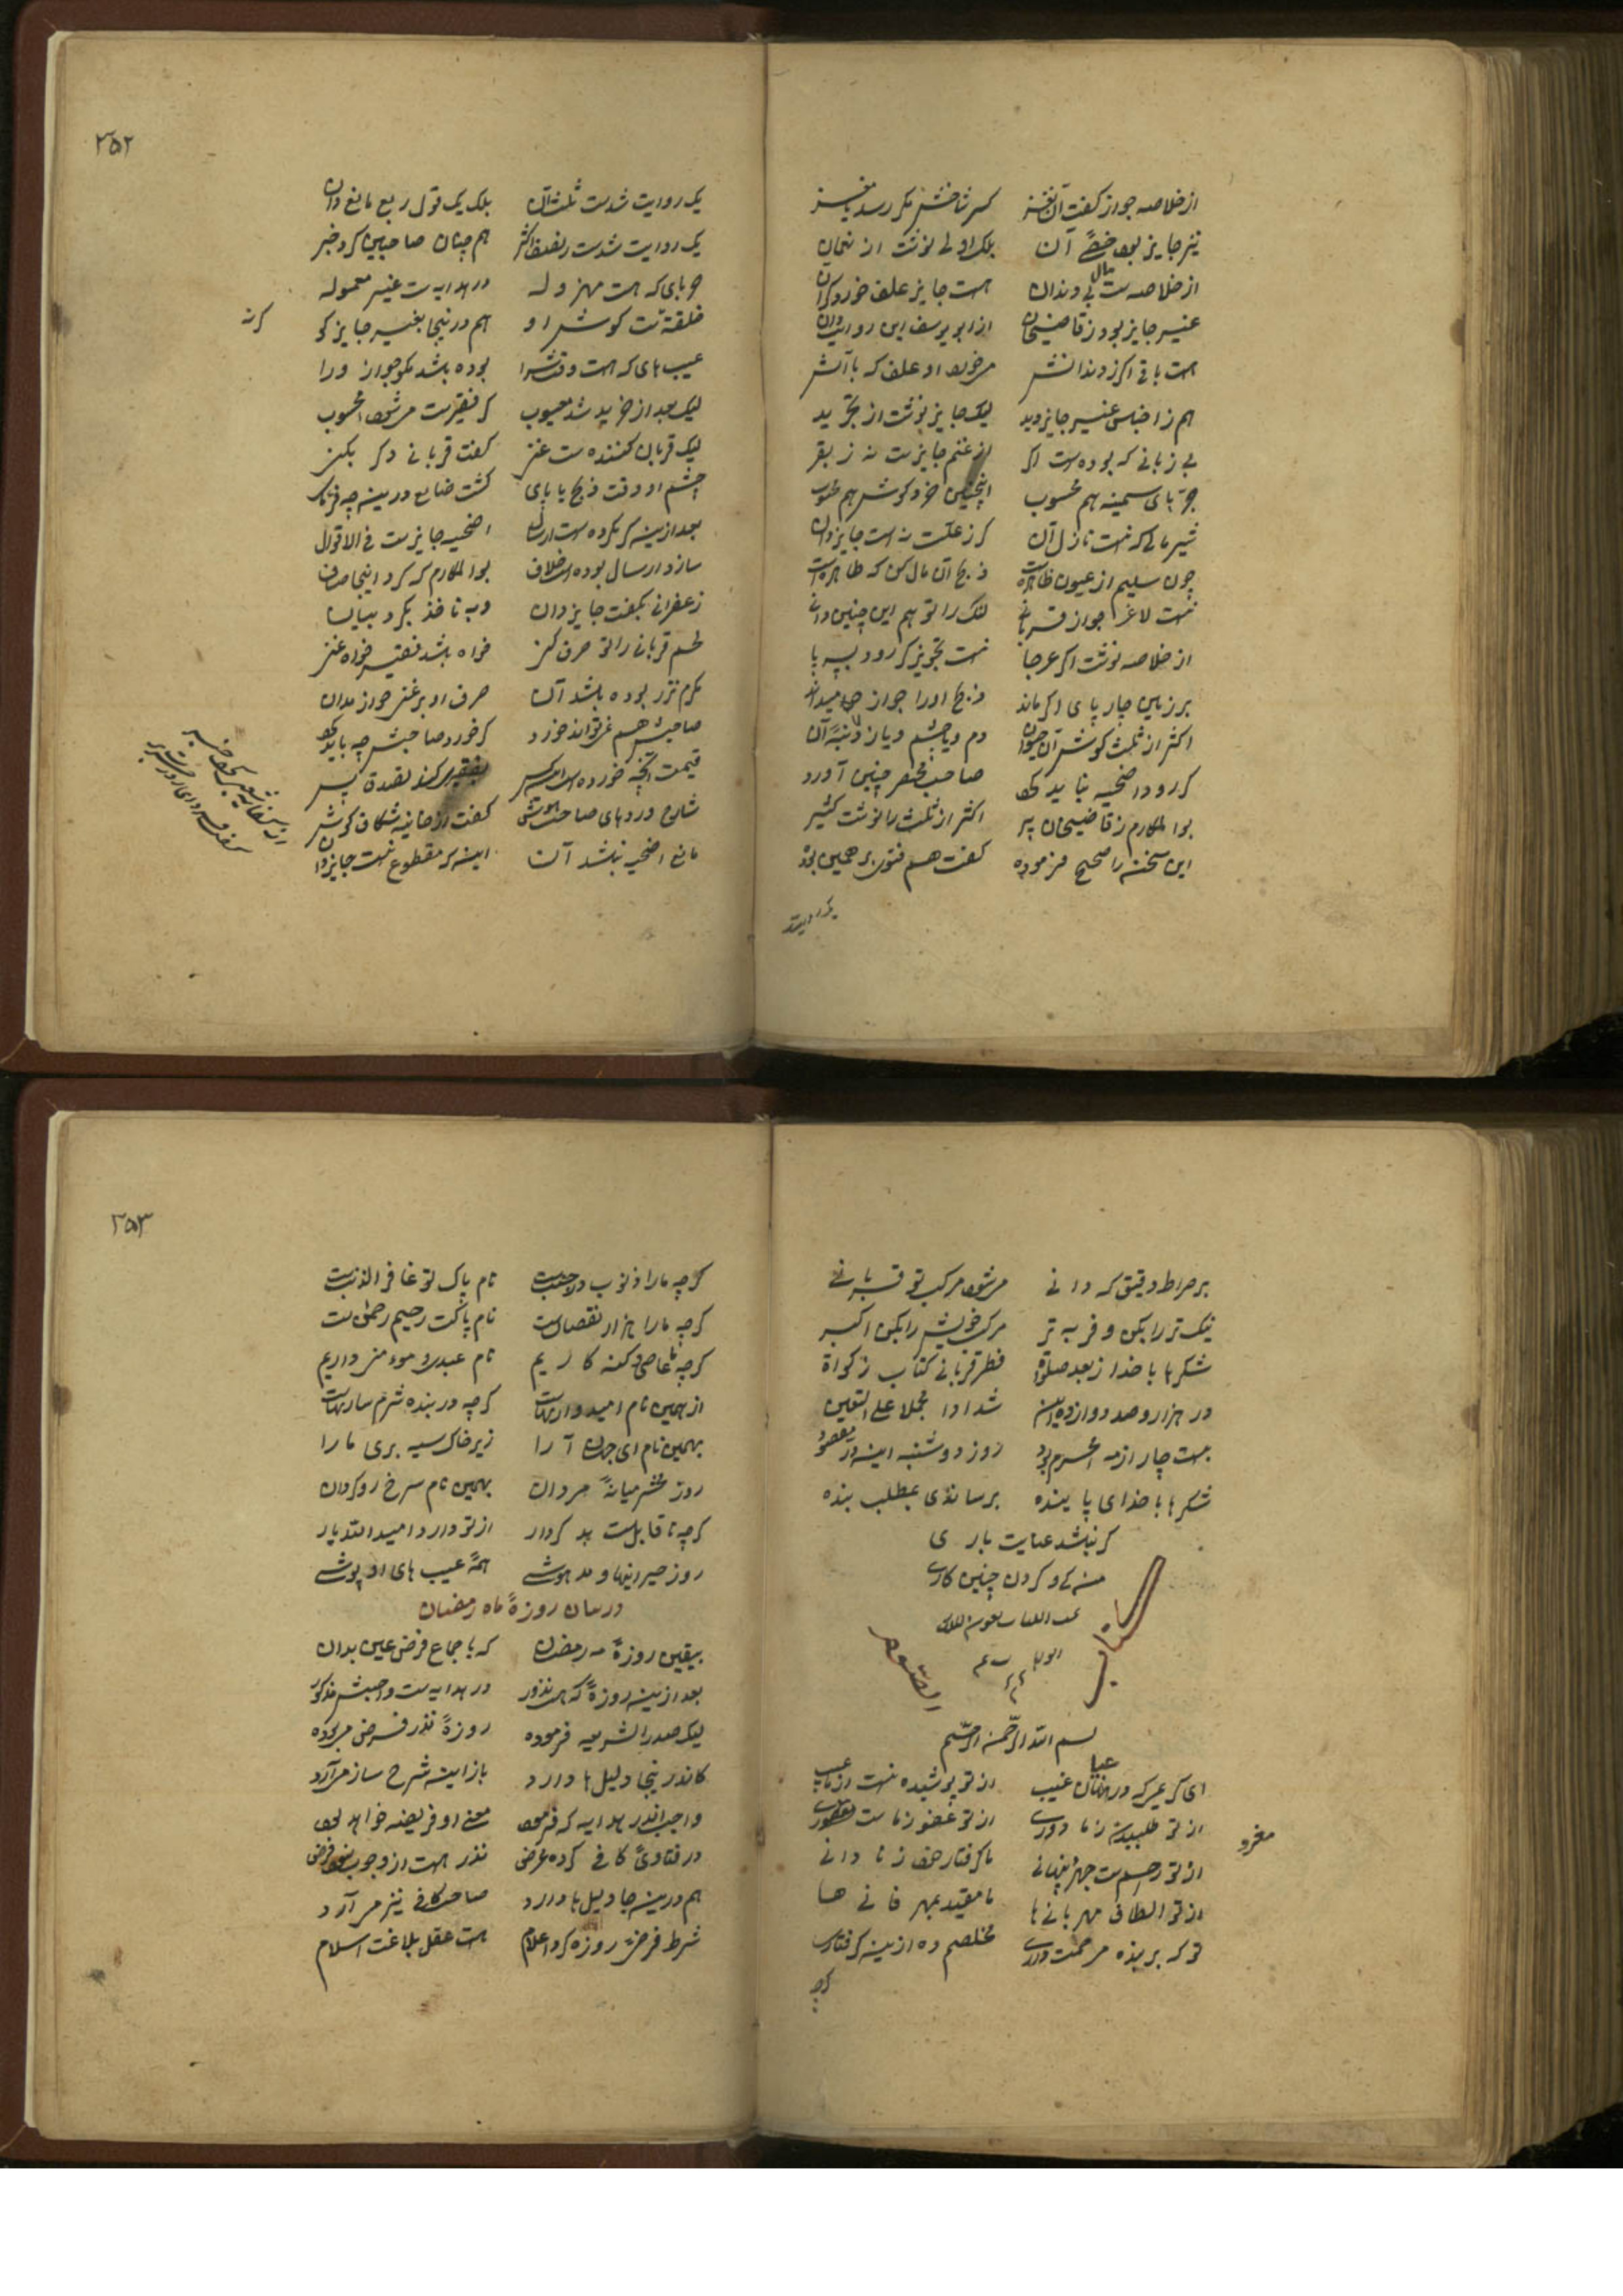 از خلاصه جواز کفت آن نغز کسر شاخش مکر رسد با مغز
نیز جایز بود خصی آن بلک اولی نوشت از نعمان
از خلاصه ست مال بی دندان هست جایز علف خورد کر آن
غیر جایز بود ز قاضیخان از ابو یوسف این روایت دان
هست باقی اکر ز دندانش میخورد او علف که با آنش
هم ز اجناس غیر جایز دید لیک جایز نوشت از تجرید
بی زبانی که بوده است اکر از غنم جایزست نه ز بقر
سمینه هم محسوب اینچنین خورد کوش هم
شیر مالی که نیست نازل آن کر ز علت نه است جایز دان
چون سلیم از عیون ظاهرست ذبح آن مال کن که طاهرست
نیست لاغر جواز قربانی لنک را تو هم این چنین دانی
از خلاصه نوشت اکر عرجا نیست تجویز کر رود بسه پا
بر زمین چار پای اکر ماند ذبح او را جواز میداند
اکثر از ثلث کوش آن حیوان دم و یا چشم و یا ز دنبهٔ آن
کر رود اضحیه نباید کرد صاحب مختصر چنین آورد
بوالمکارم ز قاضیخان پیر اکثر از ثلث را نوشت کثیر
این سخن را صحیح فرموده کفت هم فتوی بر همین بوده
یک روایت
۲۵۲
یک روایت شدست ثلث آن بلک یک قول ربع مانع دان
یک روایت شدست نصف اکثر هم چنان صاحبین کرد خبر
که هست مهزوله در هدایه ست غیر معموله
خلقة نیست کوش او هم درینجا بغیر جایز کو
عیب های که هست وقت شرا بوده باشد مکو جواز ورا
لیک بعد از خرید شد معیوب کر فقیرست میشود محسوب
لیک قربان کننده ست غنی کفت قربانی دکر بکنی
چشم او وقت ذبح یا پای کشت ضایع درینه چه فرمای
بعد ازینه کر نکرده است ارسال اضحیه جایزست فی الاقوال
سازد ارسال بوده است خلاف بوالمکارم که کرد اینجا صاف
زعفرانی بکفت جایز دان
لحم قربانی را تو صرف کنی خواه باشد فقیر خواه غنی
کر نذر بوده باشد آن صرف او بر غنی جواز مدان
صاحبش هم نمی تواند خورد کر خورد صاحبش چه باید کرد
قیمت آنچه خورده است بفقیر کند تصدق پس
شارح ورد های صاحب هوش کفت از خانیه شکاف کوش
مانع اضحیه نباشد آن اینه کر مقطوع نیست جایز دان
بر صراط دقیق که دانی میشود مرکب تو قربانی
نیک تر را بکن و فربه تر مرکب خویش را بکن اکبر
شکرها با خدا ز بعد صلوة فطر قربانی کتاب زکواة
در هزار و صد و دوازده این شد ادا مجملا علی التعیین
بیست چار از مه محرم بود روز دوشنبه اینه در مقصود
شکرها با خدای پاینده برساندی بمطلب بنده
کر نباشد عنایت باری
من کی و کردن چنین کاری
کتاب الصوم
بسم الله الرحمن الرحیم
ای کریمی که در نهان عیب از تو پوشیده نیست از ما عیب
از تو طلبیدن ز ما دوری از تو غفور ز ماست مغروری
ما کرفتار حق ز نادانی
از تو الطاف مهربانی ها ما مقید بمهر فانی ها
تو که بر بنده مرحمت داری مخلصم ده ازینه کرفتاری
کرچه
۲۵۳
کرچه ما را ذنوب نام پاک تو غافر الذنبست
کرچه ما را هزار نقصانست نام پاکت رحیم رحمن ست
کرچه ما عاصی و کنه کاریم نام عبد و مومنی داریم
از همین نام امیدواریهاست کرچه در بنده شرم ساریهاست
بهمین نام ای جهان آرا زیر خاک سیه بری ما را
روز محشر میانهٔ مردان بهمین نام سرخ رو کردان
کرچه ناقابلست بد کردار از تو دارد امید الله یار
روز حیرانیها و مدهوشی همهٔ عیب های او پوشی
در بیان روزهٔ ماه رمضان
بیقین روزهٔ مه رمضان که باجماع فرض عین بدان
بعد ازینه روزهٔ که هست نذور در هدایه ست واجبش مذکور
لیک صدر الشریعه فرموده روزهٔ نذر فرض می بوده
کاندر اینجا دلیل ها دارد باز اینه شرح ساز می آرد
واجب اندر هدایه که فرمود معنی او فریضه خواهد بود
در فتاوی کافی کرده عرض نذر هست از وجوب یعنی فرض
هم درینه جا دلیل ها دارد صاحب کافی نیز می آرد
شرط فرضی روزه کرد اعلام هست عقل بلاغت اسلام